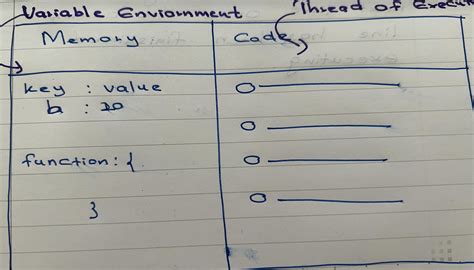 Variable Enviornment
Thread of Execut
Memory
Code
key : value
b : 20
function: {
}